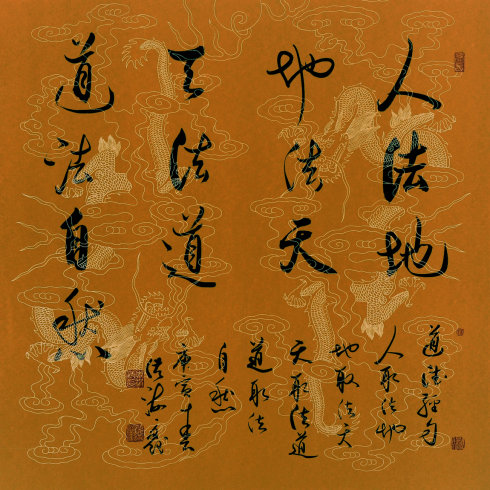 人法地
地法天
天法道
道法自然
道德經句
人取法地
地取法天
天取法道
道取法
自然
庚寅年